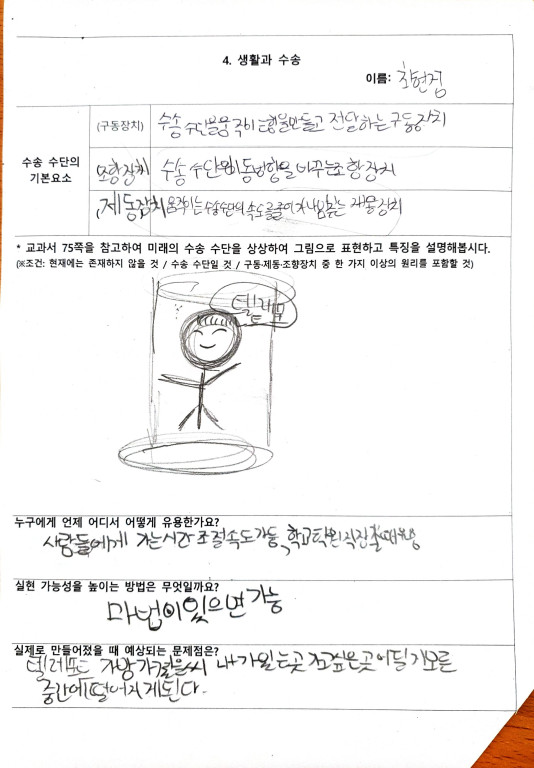 4. 생활과 수송
이름: 최현집
수송 수단의
기본요소
(구동장치) 수송 수단을 움직이는 힘을 만들고 전달하는 구동장치
조향장치 수송 수단의 이동방향을 바꾸는 조향장치
제동장치 움직이는 수송수단의 속도를 줄이거나 멈추는 제동장치
* 교과서 75쪽을 참고하여 미래의 수송 수단을 상상하여 그림으로 표현하고 특징을 설명해봅시다.
(※조건: 현재에는 존재하지 않을 것 / 수송 수단일 것 / 구동·제동·조향장치 중 한 가지 이상의 원리를 포함할 것)
누구에게 언제 어디서 어떻게 유용한가요?
사람들에게 가는시간 조절 속도 가능, 학교 학원 직장 갈때 유용
실현 가능성을 높이는 방법은 무엇일까요?
마법이 있으면 가능
실제로 만들어졌을 때 예상되는 문제점은?
텔레포트 자망 가 내가 있는곳 가고싶은곳 어딜 가모른
중간에 떨어지게된다.